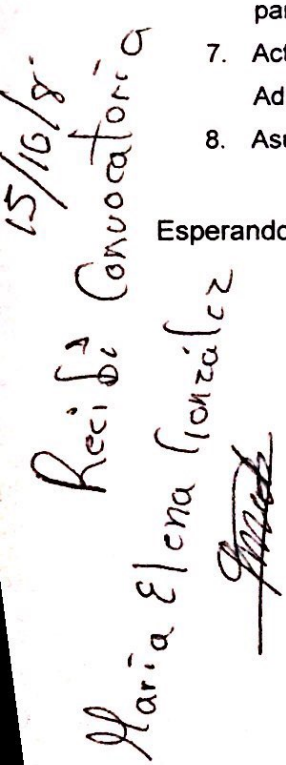 par
7. Act
Ad
8. Asu
Esperando
15/10/8
Recibí Convocatoria
María Elena González